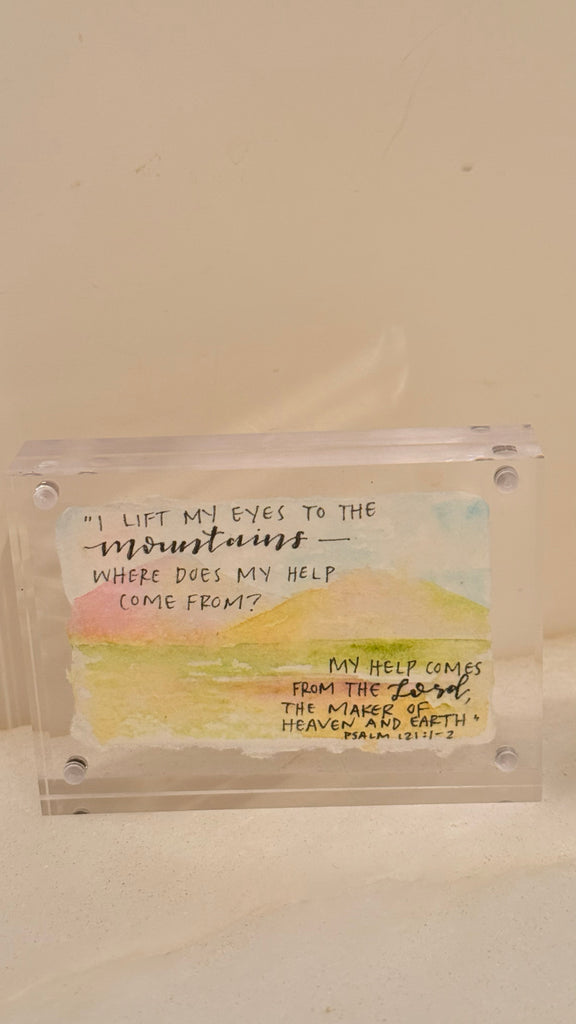 "I LIFT MY EYES TO THE
mountains —
WHERE DOES MY HELP
COME FROM?
MY HELP COMES
FROM THE Lord,
THE MAKER OF
HEAVEN AND EARTH"
PSALM 121:1-2